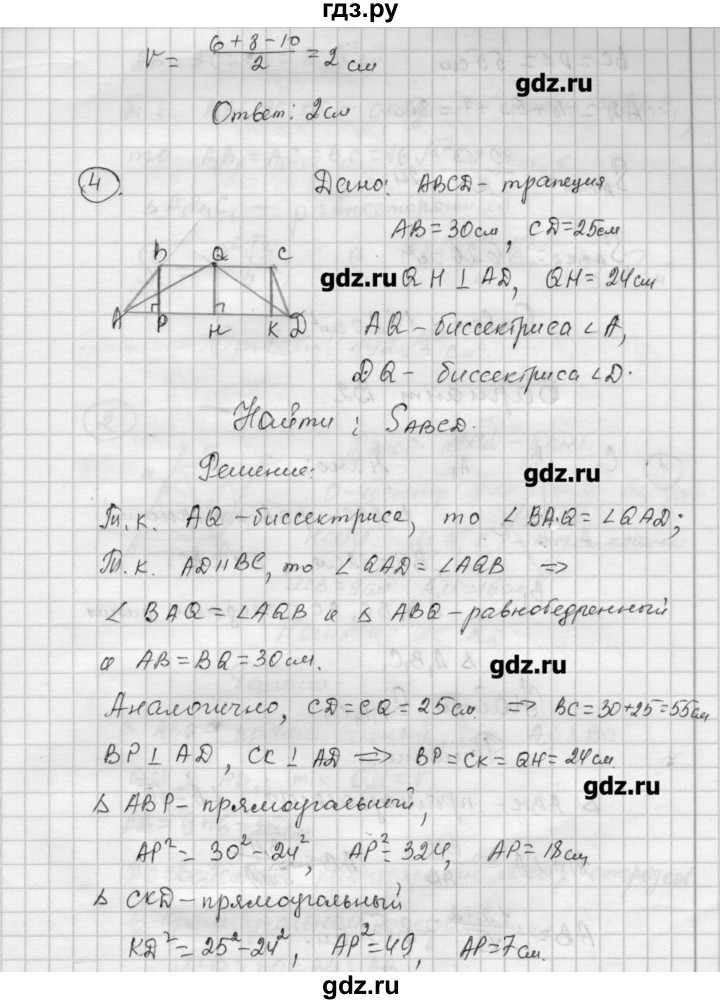 гдз.ру
r = (6+8-10)/2 = 2 см
gdz.ru
Ответ: 2см
4.
Дано: ABCD - трапеция
AB = 30см, CD = 25см
gdz.ru QH ⊥ AD, QH = 24см
B Q C
A P H K D
AQ - биссектриса ∠A,
DQ - биссектриса ∠D.
Найти: SABCD.
Решение:
gdz.ru
Т.к. AQ - биссектриса, то ∠BAQ = ∠QAD;
Т.к. AD || BC, то ∠QAD = ∠AQB ⇒
∠BAQ = ∠AQB и △ABQ - равнобедренный
и AB = BQ = 30см.
gdz.ru
Аналогично, CD = CQ = 25см. ⇒ BC = 30+25 = 55см
BP ⊥ AD, CC ⊥ AD ⇒ BP = CK = QH = 24см
gdz.ru
△ABP - прямоугальный,
AP² = 30² - 24², AP² = 324, AP = 18см
△CKD - прямоугальный
KD² = 25² - 24², AP² = 49, AP = 7см.
gdz.ru